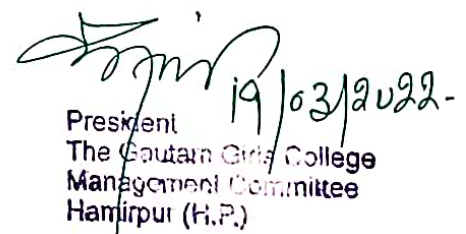 19/03/2022-
President
The Gautam Girls College
Management Committee
Hamirpur (H.P.)